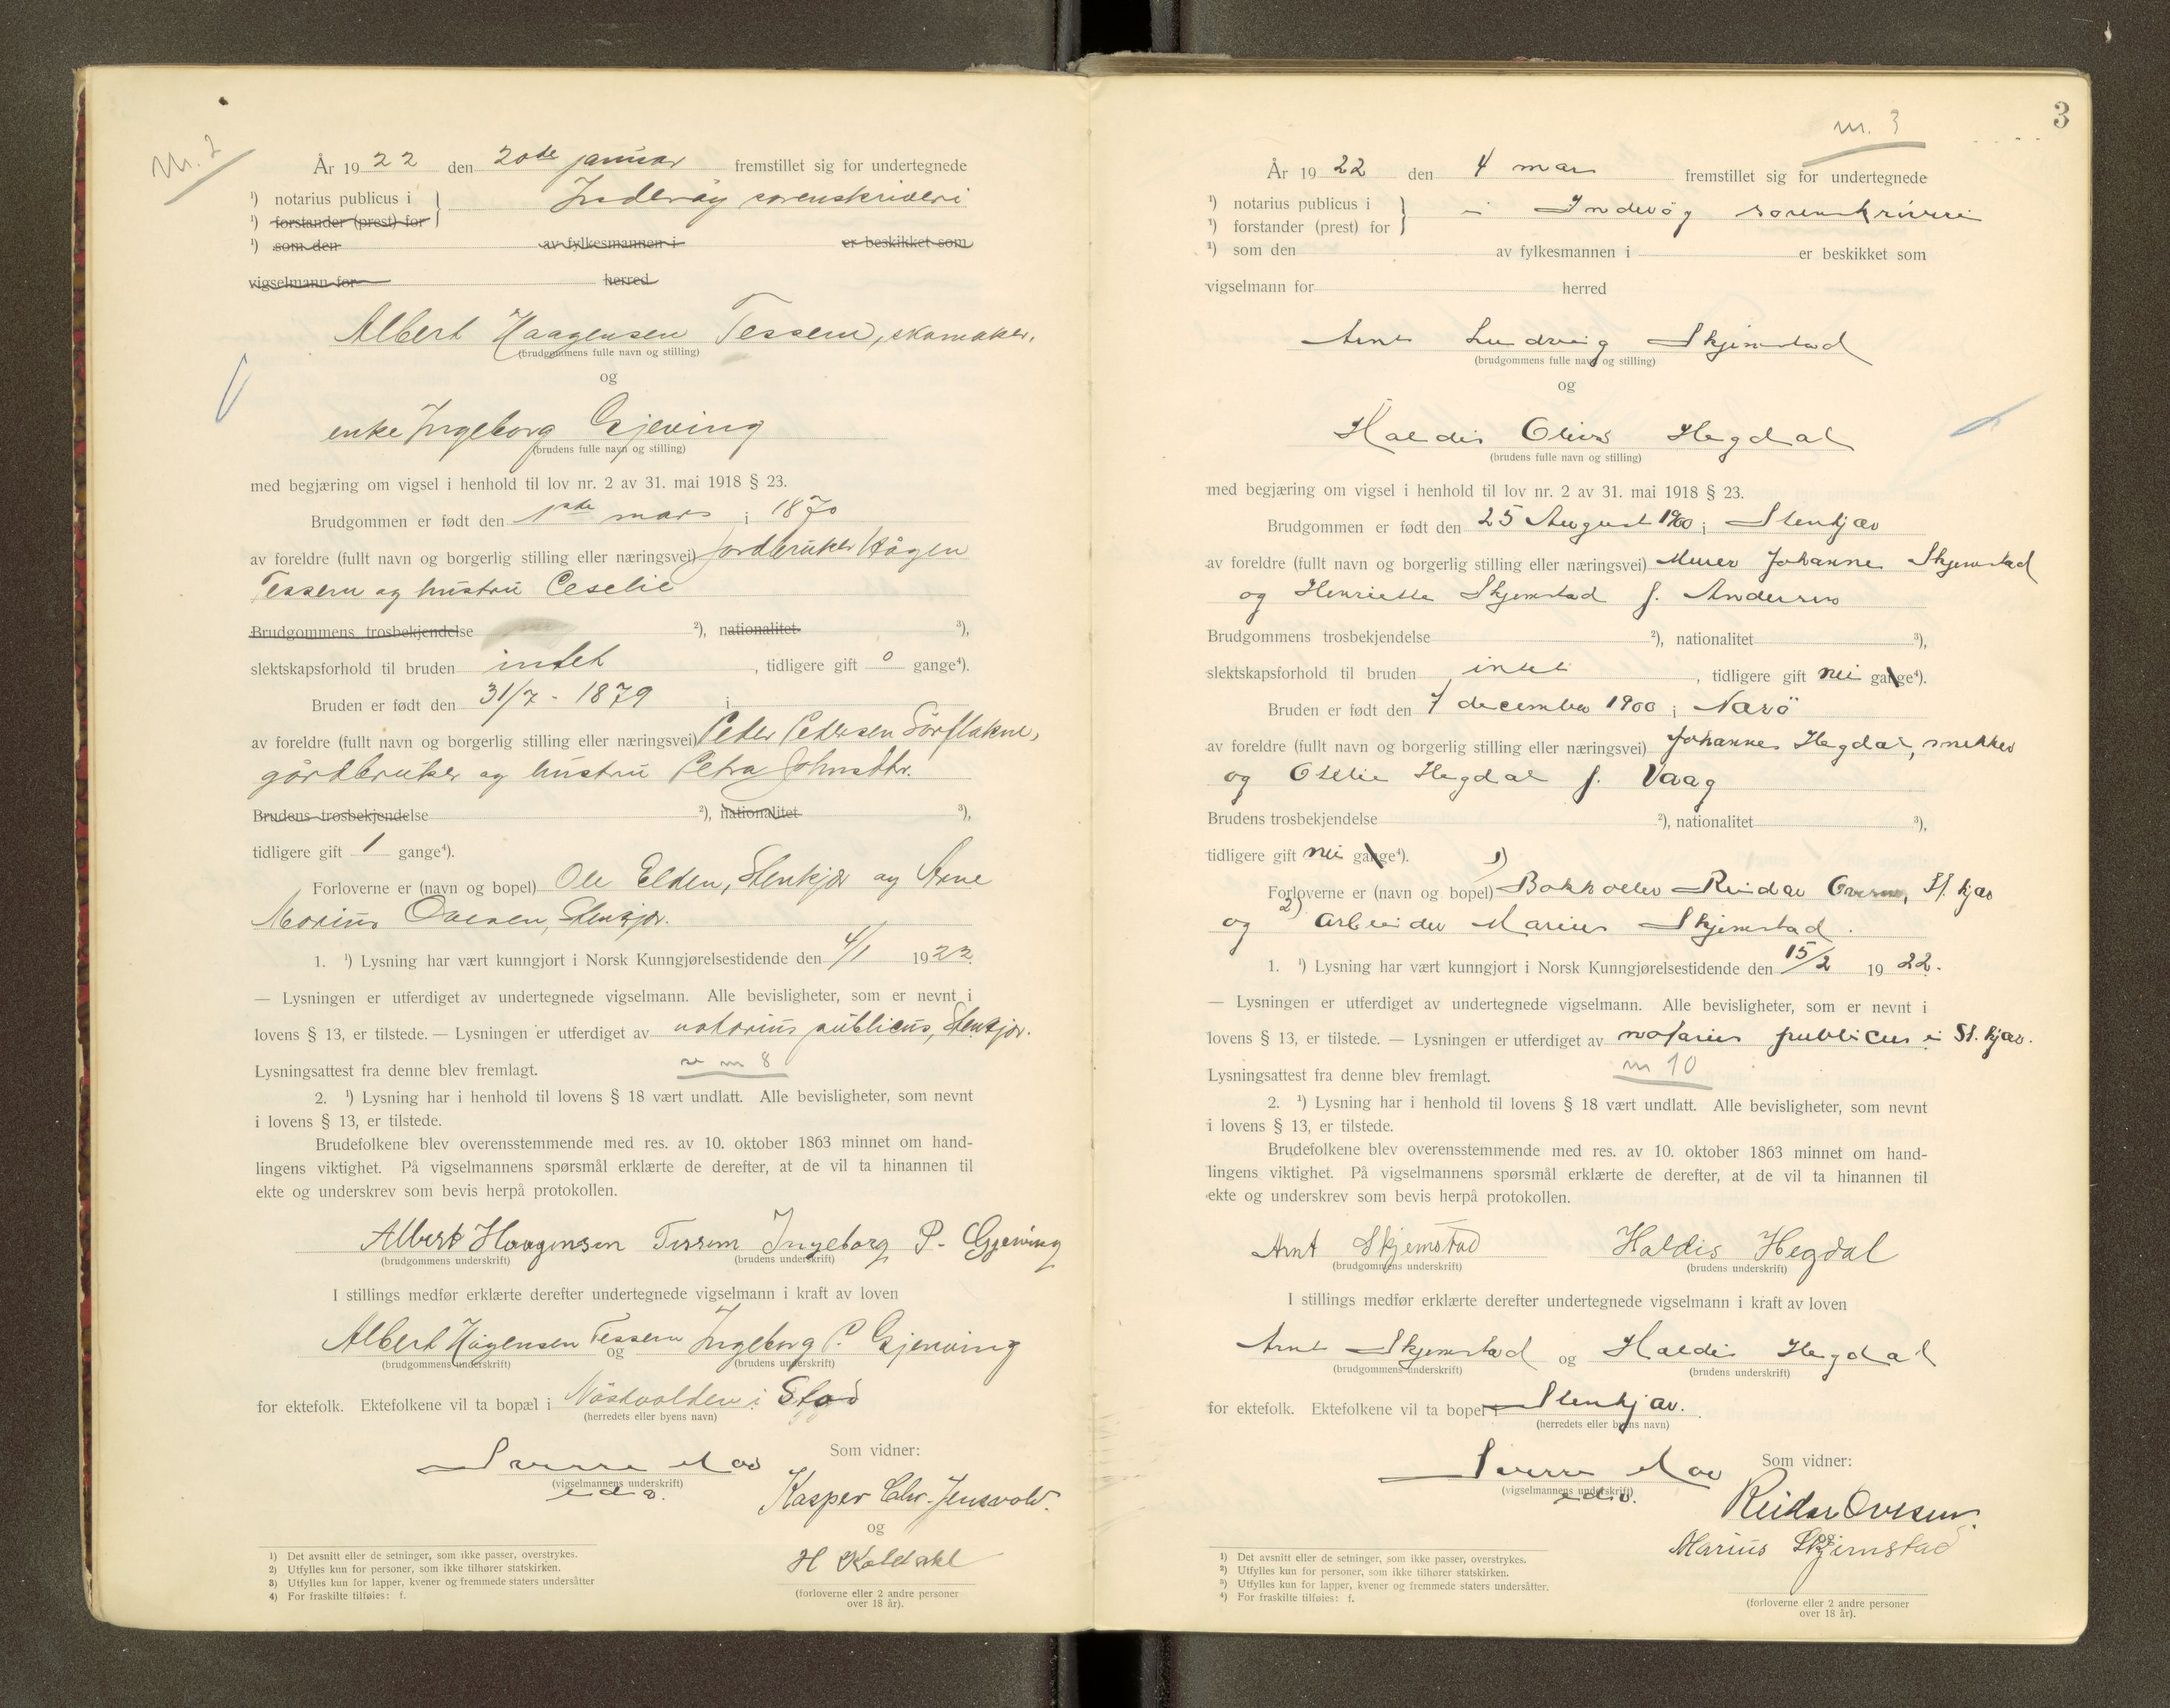 Nr. 2
År 1922 den 20de januar fremstillet sig for undertegnede
¹) notarius publicus i } Inderøy sorenskriveri
¹) forstander (prest) for
¹) som den av fylkesmannen i er beskikket som
vigselmann for herred
Albert Haagensen Tessem, skomaker.
(brudgommens fulle navn og stilling)
og
enke Ingeborg Gjeving
(brudens fulle navn og stilling)
med begjæring om vigsel i henhold til lov nr. 2 av 31. mai 1918 § 23.
Brudgommen er født den 1ste mars i 1870
av foreldre (fullt navn og borgerlig stilling eller næringsvei) jordbruker Hågen
Tessem og hustru Ceselie
Brudgommens trosbekjendelse ²), nationalitet ³),
slektskapsforhold til bruden intet, tidligere gift 0 gange⁴).
Bruden er født den 31/7 - 1879 i
av foreldre (fullt navn og borgerlig stilling eller næringsvei) Peder Pedersen Sörflakne,
gårdbruker og hustru Petra Johnsdtr.
Brudens trosbekjendelse ²), nationalitet ³),
tidligere gift 1 gange⁴).
Forloverne er (navn og bopel) Ole Elden, Stenkjær og Arne
Morius Ovesen, Stenkjær.
1. ¹) Lysning har vært kunngjort i Norsk Kunngjørelsestidende den 4/1 1922.
— Lysningen er utferdiget av undertegnede vigselmann. Alle bevisligheter, som er nevnt i
lovens § 13, er tilstede. — Lysningen er utferdiget av notarius publicus, Stenkjær.
Lysningsattest fra denne blev fremlagt. se nr 8
2. ¹) Lysning har i henhold til lovens § 18 vært undlatt. Alle bevisligheter, som nevnt
i lovens § 13, er tilstede.
Brudefolkene blev overensstemmende med res. av 10. oktober 1863 minnet om hand-
lingens viktighet. På vigselmannens spørsmål erklærte de derefter, at de vil ta hinannen til
ekte og underskrev som bevis herpå protokollen.
Albert Haagensen Tessem Ingeborg P. Gjeving
(brudgommens underskrift) (brudens underskrift)
I stillings medfør erklærte derefter undertegnede vigselmann i kraft av loven
Albert Hågensen Tessem og Ingeborg P. Gjeving
(brudgommens underskrift) (brudens underskrift)
for ektefolk. Ektefolkene vil ta bopæl i Nöstvolden i Stod
(herredets eller byens navn)
Sverre Moe Som vidner:
(vigselmannens underskrift)
eds. Kasper Chr. Jensvold.
og
H Koldahl
(forloverne eller 2 andre personer
over 18 år).
1) Det avsnitt eller de setninger, som ikke passer, overstrykes.
2) Utfylles kun for personer, som ikke tilhører statskirken.
3) Utfylles kun for lapper, kvener og fremmede staters undersåtter
4) For fraskilte tilføies: f.
3
nr. 3
År 1922 den 4 mars fremstillet sig for undertegnede
¹) notarius publicus i } i Inderöy sorenskriveri
¹) forstander (prest) for
¹) som den av fylkesmannen i er beskikket som
vigselmann for herred
Arnt Ludvig Skjemstad
(brudgommens fulle navn og stilling)
og
Haldis Hegdal
(brudens fulle navn og stilling)
med begjæring om vigsel i henhold til lov nr. 2 av 31. mai 1918 § 23.
Brudgommen er født den 25 August 1900 i Stenkjær
av foreldre (fullt navn og borgerlig stilling eller næringsvei) Murer Johannes Skjemstad
og Henriette Skjemstad f. Andersen
Brudgommens trosbekjendelse ²), nationalitet ³),
slektskapsforhold til bruden intet, tidligere gift nei gange⁴).
Bruden er født den 7 december 1900 i Nærö
av foreldre (fullt navn og borgerlig stilling eller næringsvei) Johannes Hegdal, snekker
og Otelie Hegdal f. Vaag
Brudens trosbekjendelse ²), nationalitet ³),
tidligere gift nei gange⁴).
Forloverne er (navn og bopel) 1) Bokholder Reidar Ovesen, St.kjær
og 2) arbeider Marius Skjemstad.
1. ¹) Lysning har vært kunngjort i Norsk Kunngjørelsestidende den 15/2 1922.
— Lysningen er utferdiget av undertegnede vigselmann. Alle bevisligheter, som er nevnt i
lovens § 13, er tilstede. — Lysningen er utferdiget av notarius publicus i St.kjær.
Lysningsattest fra denne blev fremlagt. nr 10
2. ¹) Lysning har i henhold til lovens § 18 vært undlatt. Alle bevisligheter, som nevnt
i lovens § 13, er tilstede.
Brudefolkene blev overensstemmende med res. av 10. oktober 1863 minnet om hand-
lingens viktighet. På vigselmannens spørsmål erklærte de derefter, at de vil ta hinannen til
ekte og underskrev som bevis herpå protokollen.
Arnt Skjemstad Haldis Hegdal
(brudgommens underskrift) (brudens underskrift)
I stillings medfør erklærte derefter undertegnede vigselmann i kraft av loven
Arnt Skjemstad og Haldis Hegdal
(brudgommens underskrift) (brudens underskrift)
for ektefolk. Ektefolkene vil ta bopel i Stenkjær.
(herredets eller byens navn)
Sverre Moe Som vidner:
(vigselmannens underskrift)
eds. Reidar Ovesen.
og
Marius Skjemstad
(forloverne eller 2 andre personer
over 18 år).
1) Det avsnitt eller de setninger, som ikke passer, overstrykes.
2) Utfylles kun for personer, som ikke tilhører statskirken.
3) Utfylles kun for lapper, kvener og fremmede staters undersåtter.
4) For fraskilte tilføies: f.